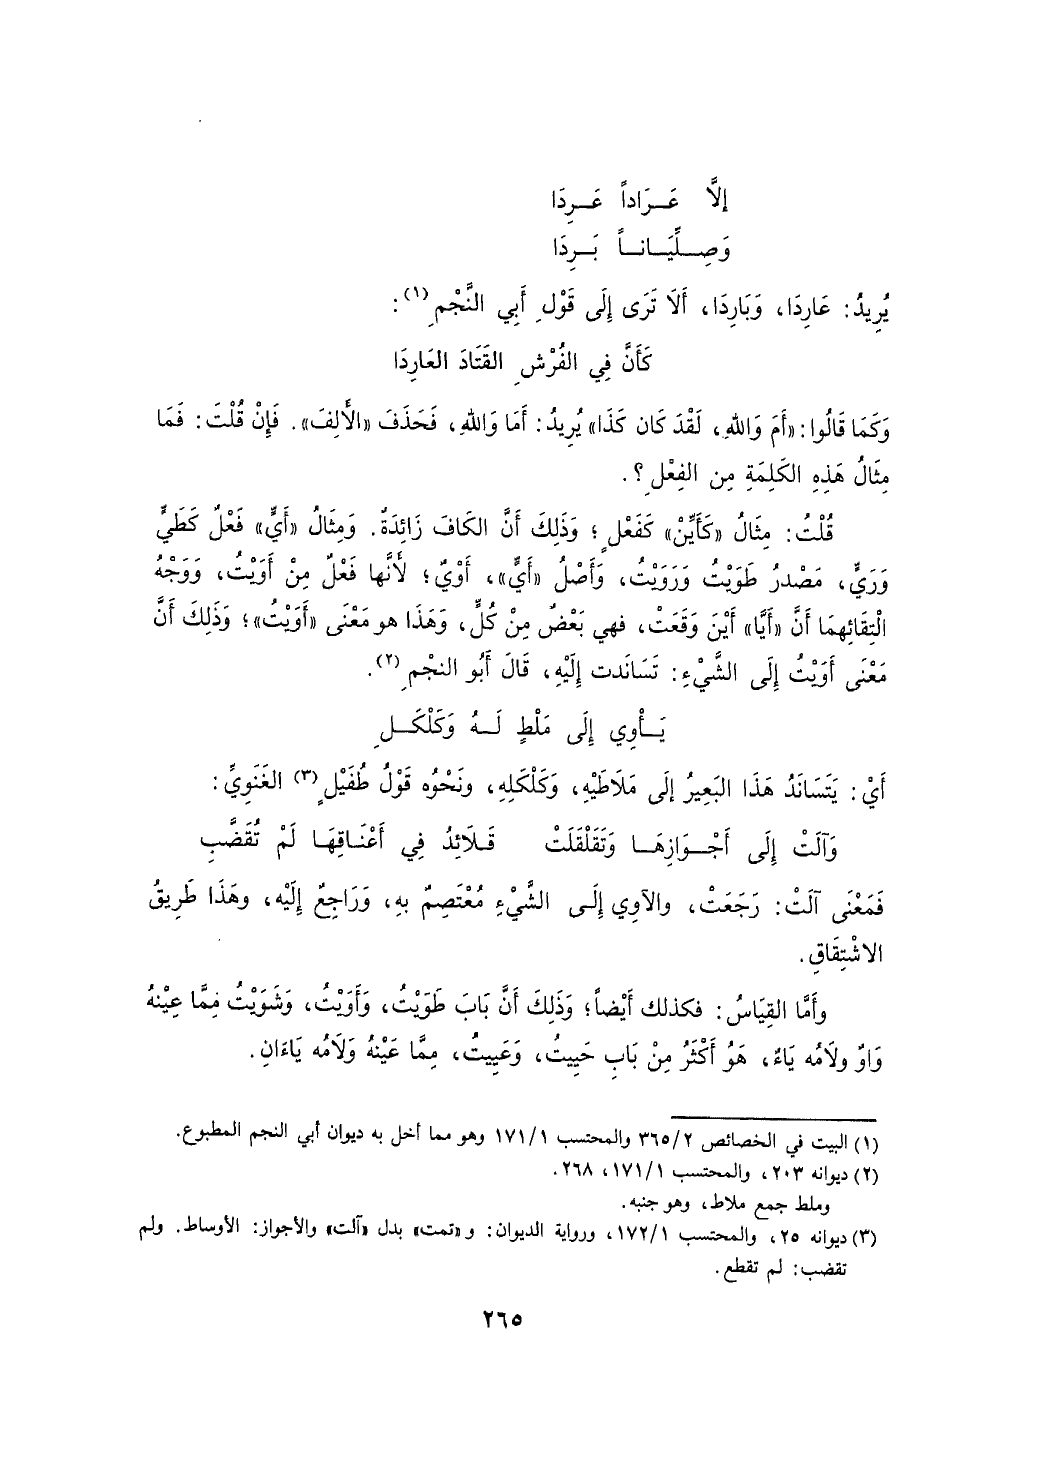 إلَّا عَـرَاداً عَـرِدَا
وَصِـلِّيَـانـاً بَـرِدَا
يُرِيدُ: عَارِدَا، وَبَارِدَا، أَلَا تَرَى إِلَى قَوْلِ أَبِي النَّجْمِ(١):
كَأَنَّ فِي الفُرْشِ القَتَادَ العَارِدَا
وَكَمَا قَالُوا: «أَمَ وَاللهِ، لَقْدَ كَان كَذَا» يُرِيدُ: أَمَا وَاللهِ، فَحَذَفَ «الأَلِفَ». فَإِنْ قُلْتَ: فَمَا
مِثَالُ هَذِهِ الكَلِمَةِ مِن الفِعْلِ؟.
قُلْتُ: مِثَالُ «كَأَيِّنْ» كَفَعْلٍ؛ وَذَلِكَ أَنَّ الكَافَ زَائِدَةٌ. وَمِثَالُ «أَيٍّ» فَعْلٌ كَطَيٍّ
وَرَيٍّ، مَصْدرُ طَوَيْتُ وَرَوَيْتُ، وَأَصْلُ «أَيٍّ»، أَوْيٌ؛ لأَنَّها فَعْلٌ مِنْ أَوَيْتُ، وَوَجْهُ
الْتِقَائِهِمَا أَنَّ «أَيًّا» أَيْنَ وَقَعَتْ، فهي بَعْضٌ مِنْ كُلٍّ، وَهَذَا هو مَعْنَى «أَوَيْتُ»؛ وَذَلِكَ أَنَّ
مَعْنَى أَوَيْتُ إِلَى الشَّيْءِ: تَسَانَدت إِلَيْهِ، قَالَ أَبُو النجْمِ(٢).
يَـأْوِي إِلَى مَلْطٍ لَـهُ وَكَلْكَـلِ
أَيْ: يَتَسَانَدُ هَذَا البَعِيرُ إِلَى مَلَاطَيْهِ، وَكَلْكَلِهِ، ونَحْوُه قَوْلُ طُفَيْلٍ(٣) الغَنَوِيِّ:
وَآلَتْ إِلَى أَجْـوَازِهَـا وَتَقَلْقَلَتْ قَـلَائِدُ فِي أَعْنَاقِهَا لَمْ تُقَضَّبِ
فَمَعْنَى آلَتْ: رَجَعَتْ، والآوِي إِلَـى الشَّيْءِ مُعْتَصِمٌ بهِ، وَرَاجِعٌ إِلَيْه، وهَذَا طَرِيقُ
الاشْتِقَاقِ.
وأَمَّا القِيَاسُ: فكذلك أَيْضاً؛ وَذَلِكَ أَنَّ بَابَ طَوَيْتُ، وَأَوَيْتُ، وَشَوَيْتُ مِمَّا عِيْنهُ
وَاوٌ ولَامُه يَاءٌ، هَوُ أَكْثَرُ مِنْ بَابِ حَيِيتُ، وَعَيِيتُ، مِمَّا عَيْنُهُ وَلَامُه يَاءَانِ.
(١) البيت في الخصائص ٣٦٥/٢ والمحتسب ١٧١/١ وهو مما أخل به ديوان أبي النجم المطبوع.
(٢) ديوانه ٢٠٣، والمحتسب ١٧١/١، ٢٦٨.
وملط جمع ملاط، وهو جنبه.
(٣) ديوانه ٢٥، والمحتسب ١٧٢/١، ورواية الديوان: و«تمت» بدل «آلت» والأجواز: الأوساط. ولم
تقضب: لم تقطع.
٢٦٥